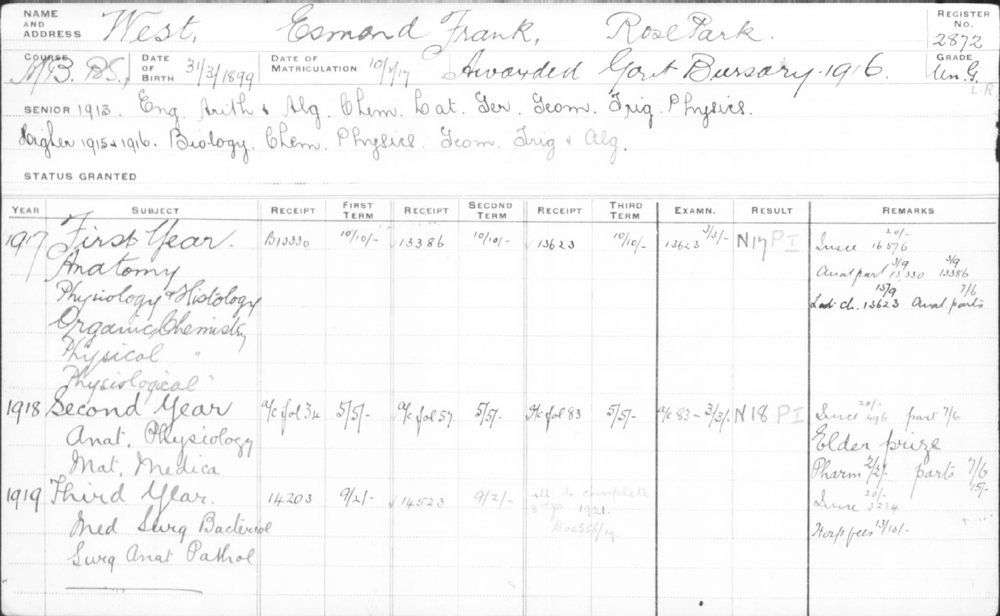 NAME AND ADDRESS West, Esmond Frank, Rose Park. REGISTER NO. 2872
COURSE M.B. B.S., DATE OF BIRTH 31/3/1899 DATE OF MATRICULATION Awarded Govt Bursary 1916. GRADE Un.G.
L.R
SENIOR 1913. Eng. Arith & Alg. Chem. Lat. Ger. Geom. Trig. Physics.
Higher 1915 & 1916. Biology. Chem. Physics. Geom. Trig & Alg.
STATUS GRANTED
YEAR SUBJECT RECEIPT FIRST TERM RECEIPT SECOND TERM RECEIPT THIRD TERM EXAMN. RESULT REMARKS
1917 First Year. B13330 10/10/- 13386 10/10/- 13623 10/10/- 13623 3/3/- N17 PI 20/- 16576
Anatomy Anat part 3/9 13330 3/9 13386
Physiology & Histology 13623 Anat parts 7/6
Organic Chemistry
Physical "
Physiological "
1918 Second Year a/c fol 34 5/5/- a/c fol 57 5/5/- a/c fol 83 5/5/- a/c 83 - 3/3/- N18 PI 20/- 496 part 7/6
Anat. Physiology Elder prize
Mat. Medica Pharm 2/2/- parts 7/6
1919 Third Year. 14203 9/2/- 14523 9/2/- to complete 20/- 3234 15/-
Med Surg Bacteriol 1921. Hosp fees 13/10/-
Surg Anat Pathol